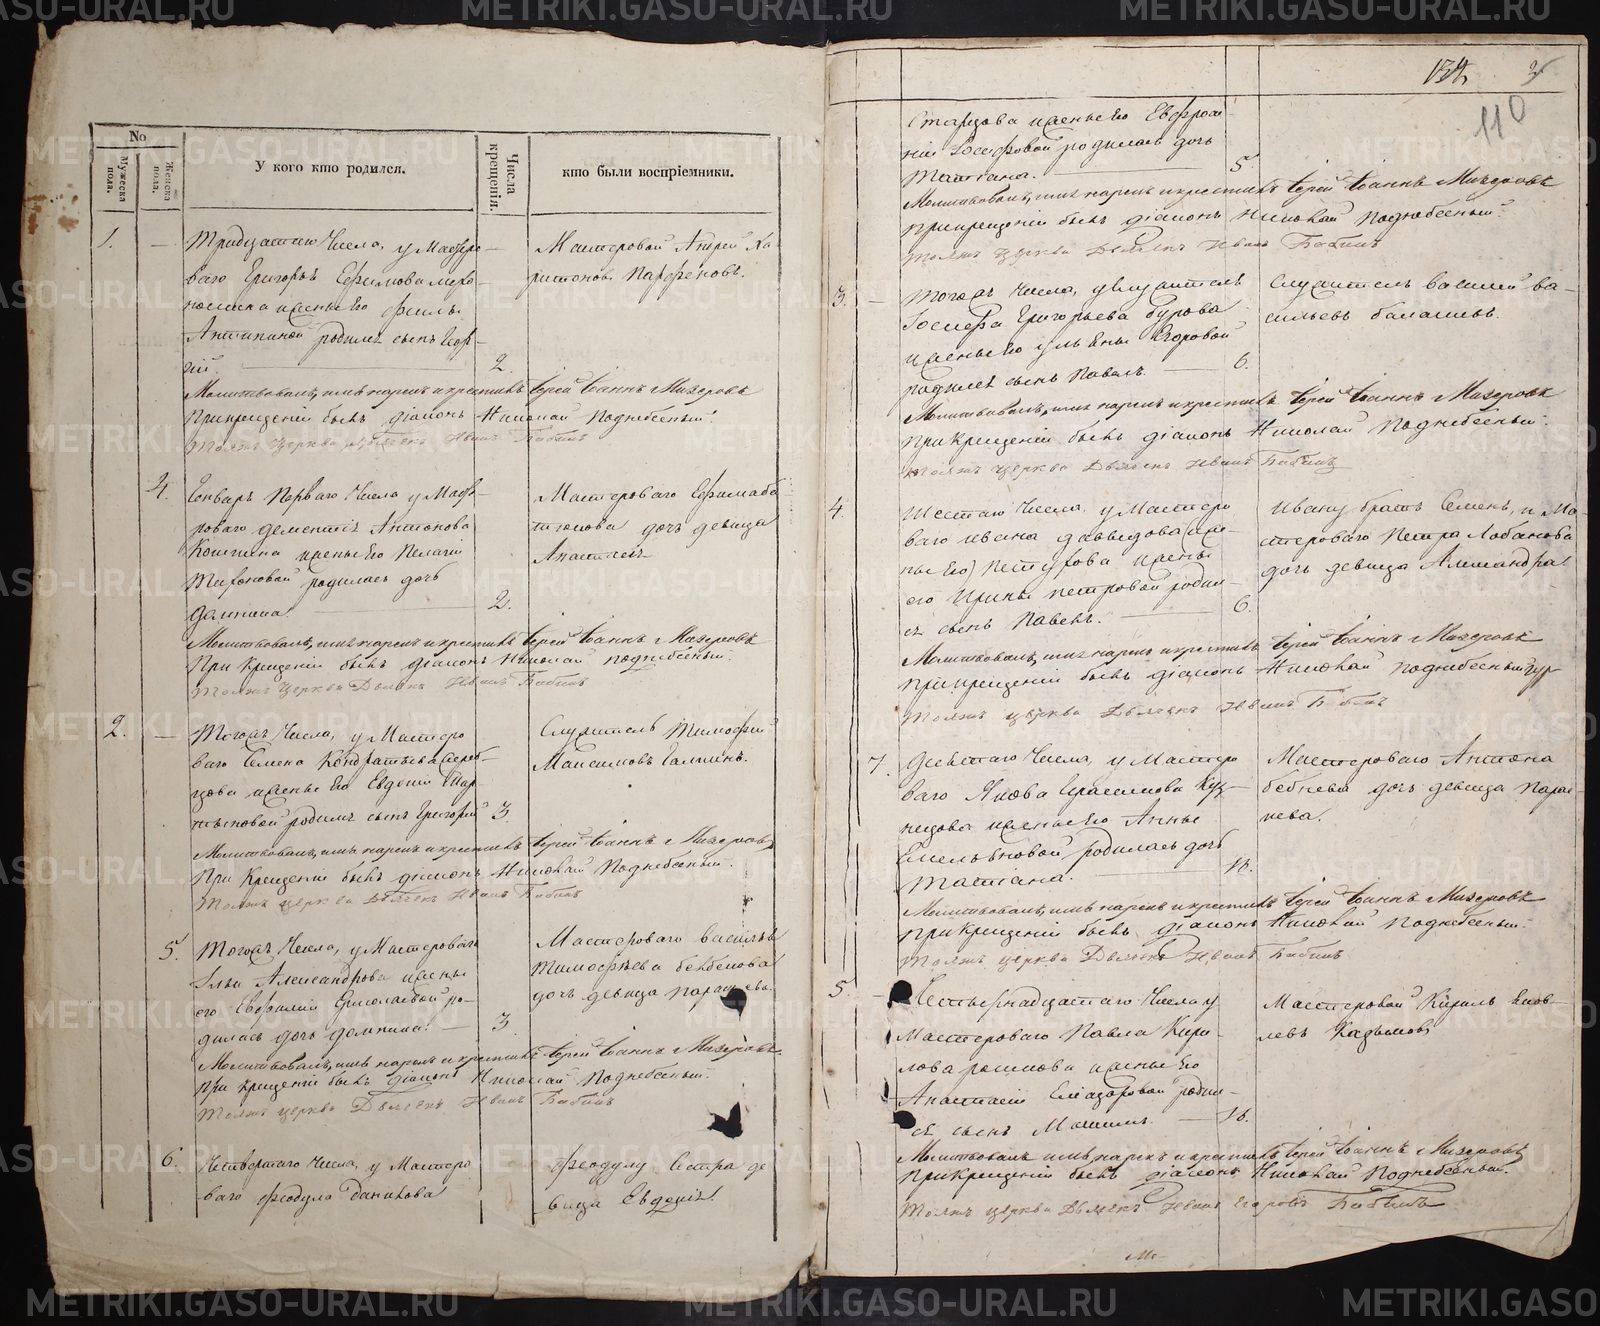 No
Мужеска пола.
Женска пола.
У кого кто родился.
Числа крещенія.
кто были воспріемники.
1.
Тридцатаго Числа, у Мастеро-
ваго Григорья Ефимова
жены Его
Антипиной родился сынъ
2.
Мастеровой Андрей Ха-
ритоновъ Парфеновъ.
Молитвовалъ, имя нарекъ и крестилъ Іерей Іоаннъ Мизеровъ
При крещеніи былъ діаконъ Николай Поднебесный.
тояжъ церкви Дьячекъ Иванъ Бабинъ
4.
Генваря Перваго Числа у Масте-
роваго Дементія Антонова
жены Его Пелагіи
родилась дочь
Домника.
2.
Мастероваго Ефима
дочь девица
Анастасія
Молитвовалъ, имя нарекъ и крестилъ Іерей Іоаннъ Мизеровъ
При крещеніи былъ діаконъ Николай Поднебесный.
тояжъ церкви Дьячекъ Иванъ Бабинъ
2.
Тогожъ Числа, у Мастеро
ваго Семена Кондратьева
жены Его Евдокіи
родился сынъ Григорій
3.
Служитель Тимофей
Максимовъ Галкинъ.
Молитвовалъ, имя нарекъ и крестилъ Іерей Іоаннъ Мизеровъ
При крещеніи былъ діаконъ Николай Поднебесный.
тояжъ церкви Дьячекъ Иванъ Бабинъ
5.
Тогожъ Числа, у Мастероваго
Ильи Александрова жены
его Ермолаевой ро-
дилась дочь Домника.
3.
Мастероваго Василья
Тимофеева
дочь девица Параскева.
Молитвовалъ, имя нарекъ и крестилъ Іерей Іоаннъ Мизеровъ
При крещеніи былъ діаконъ Николай Поднебесный.
тояжъ церкви Дьячекъ Иванъ Бабинъ
6.
Четвертаго Числа, у Мастеро
ваго Феодула Данилова
Феодулу Сестра де
вица Евдокія
110
Старцова жены Его Евфроси-
ніи Іосифовой родилась дочь
Татіана.
5
Молитвовалъ, имя нарекъ и крестилъ Іерей Іоаннъ Мизеровъ
При крещеніи былъ діаконъ Николай Поднебесный.
тояжъ церкви Дьячекъ Иванъ Бабинъ
3.
Тогожъ Числа, у служителя
Іосифа Григорьева Бурова
жены Его Ульяны Егоровой
родился сынъ Павелъ.
6.
Служитель Василій Ва-
сильевъ Балашевъ.
Молитвовалъ, имя нарекъ и крестилъ Іерей Іоаннъ Мизеровъ
При крещеніи былъ діаконъ Николай Поднебесный.
тояжъ церкви Дьячекъ Иванъ Бабинъ
4.
Шестаго Числа у Мастеро
ваго Ивана Давыдова
жены
его Ирины Петровой родил-
ся сынъ Павелъ.
6.
Ивану братъ Семенъ, и Ма-
стероваго Петра Лобанова
дочь девица Александра
Молитвовалъ, имя нарекъ и крестилъ Іерей Іоаннъ Мизеровъ
При крещеніи былъ діаконъ Николай Поднебесный
тояжъ церкви Дьячекъ Иванъ Бабинъ
7.
Девятаго Числа, у Мастеро
ваго Якова Герасимова Куз-
нецова жены Его Анны
Емельяновой родилась дочь
Татіана.
Мастероваго Антона
дочь девица Парас-
кева.
Молитвовалъ, имя нарекъ и крестилъ Іерей Іоаннъ Мизеровъ
При крещеніи былъ діаконъ Николай Поднебесный.
тояжъ церкви Дьячекъ Иванъ Бабинъ
5.
Числа у
Мастероваго Павла Кири-
лова жены Его
Анастасіи родил-
ся сынъ Максимъ.
16.
Мастеровой Кирилъ Яков-
левъ
Молитвовалъ имя нарекъ и крестилъ Іерей Іоаннъ Мизеровъ
При крещеніи былъ діаконъ Николай Поднебесный.
тояжъ церкви Дьячекъ Иванъ Егоровъ Бабинъ
METRIKI.GASO-URAL.RU